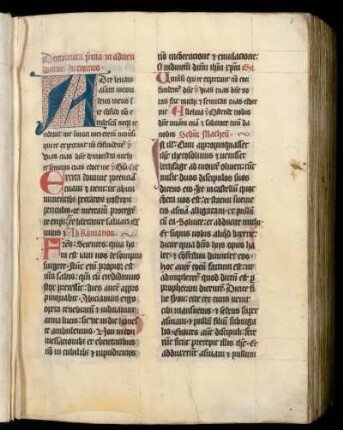 Dominica prima in adven
tum domini introitus
Ad te levavi
animam meam
deus meus i
te confido non e
rubescam neque ir
rideant me inimici mei etenim universi
qui te expectant non confundentur
vias tuas domine demonstra michi
et semitas tuas edoce me
Excita domine potentiam
tuam et veni ut ab im
minentibus peccatorum nostrorum
periculis te mereamur protegente
eripi te liberante salvari
Ad Romanos
Fratres Scientes quia ho
ra est iam nos de sompno
surgere Nunc enim propior est
nostra salus quam cum credidimus
Nox precessit dies autem appro
pinquabit Abiciamus ergo
opera tenebrarum et induamur
arma lucis sicut in die honeste
ambulemus Non in com
messacionibus et ebrietatibus
non in cubilibus et impudiciciis
non in contencione et emulacione
sed induimini dominum ihesum christum
Universi qui te expectant non con
fundentur domine vias tuas domine no
tas fac michi et semitas tuas edoce
me Alleluia Ostende nobis
domine misericordiam tuam et salutare tuum da
nobis Secundum Matheum
In illo tempore Cum appropinquasset
ihesus iherosolimis et venisset
bethfage ad montem oliveti tunc
misit duos discipulos suos
dicens eis Ite in castellum quod
contra vos est et statim invenietis
asinam alligatam et pullum
cum ea Solvite et adducite michi
Et si quis vobis aliquid dixerit
dicite quia dominus hiis opus ha
bet et confestim dimittet eos
Hoc autem totum factum est ut
adimpleretur quod dictum est per
prophetam dicentem Dicite filie
syon ecce rex tuus venit
tibi mansuetus et sedens super
asinam et pullum filium subiuga
lis Euntes autem discipuli fece
runt sicut precepit illis ihesus Et
adduxerunt asinam et pullum